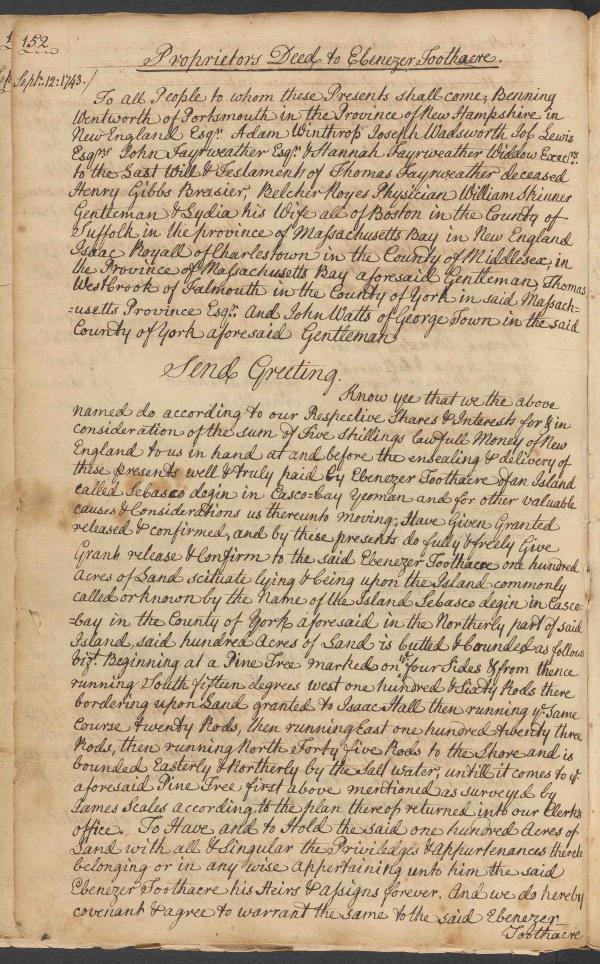 152
Proprietors Deed to Ebenezer Toothacre.
Sept: 12: 1743./
To all People to whom these Presents shall come, Benning
Wentworth of Portsmouth in the Province of New Hampshire in
New England Esqr. Adam Winthrop Joseph Wadsworth Job Lewis
Esqrs John Fayrweather Esqr. & Hannah Fayrweather Widdow Execrs.
to the Last Will & Testament of Thomas Fayrweather deceased
Henry Gibbs Brasier, Belcher Noyes Physician William Skinner
Gentleman & Lydia his Wife all of Boston in the County of
Suffolk in the province of Massachusetts Bay in New England
Isaac Royall of Charlestown in the County of Middlesex, in
the Province of Massachusetts Bay aforesaid Gentleman, Thomas
WestBrook of Falmouth in the County of York in said Massach=
=usetts Province Esqr. And John Watts of George Town in the said
County of York aforesaid Gentleman
Send Greeting.
Know yee that we the above
named do according to our Respective Shares & Interests for & in
consideration of the sum of Five shillings lawfull Money of New
England to us in hand at and before the ensealing & delivery of
these presents well & truly paid by Ebenezer Toothacre of an Island
called Sebasco degin in Casco-bay Yeoman and for other valuable
causes & Considerations us thereunto moving, Have Given Granted
released & confirmed, and by these presents do fully & freely Give
Grant release & Confirm to the said Ebenezer Toothacre one hundred
Acres of Land scituate lying & being upon the Island commonly
called or known by the Name of the Island Sebasco degin in Casco-
=bay in the County of York aforesaid in the Northerly part of said
Island, said hundred Acres of Land is butted & bounded as follows
vizt. Beginning at a Pine Tree marked on ye four Sides & from thence
running South fifteen degrees west one hundred & Sixty Rods there
bordering upon Land granted to Isaac Hall then running ye same
Course twenty Rods, then running East one hundred & twenty three
Rods, then running North Forty five Rods to the Shore and is
bounded Easterly & Northerly by the Salt water, untill it comes to ye
aforesaid Pine Tree first above mentioned as surveyed by
James Scales according to the plan thereof returned into our Clerks
office. To Have and to Hold the said one hundred Acres of
Land with all & Singular the Priviledges & appurtenances thereto
belonging or in any wise appertaining unto him the said
Ebenezer Toothacre his Heirs & assigns forever. And we do hereby
covenant & agree to warrant the same to the said Ebenezer
Toothacre